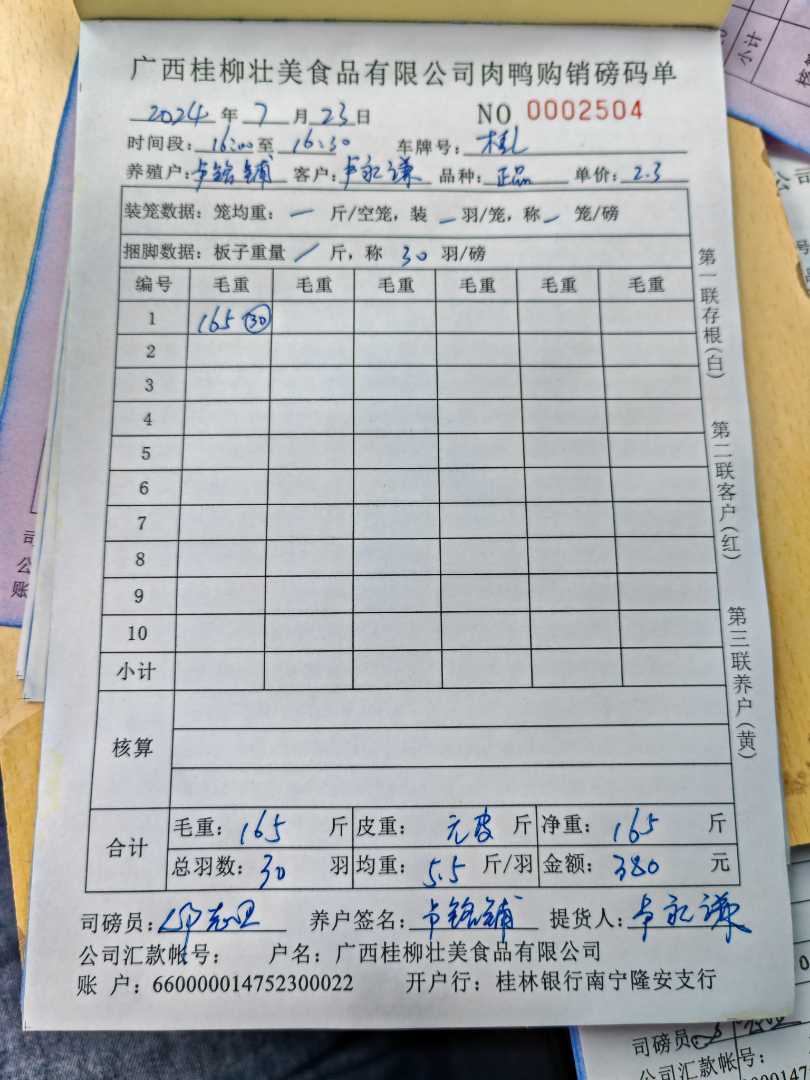 广西桂柳壮美食品有限公司肉鸭购销磅码单
2024年 7 月 23 日 NO 0002504
时间段: 16:00 至 16:30 车牌号: 桂
养殖户: 卢铭铺 客户: 卢永谦 品种: 正品 单价: 2.3
装笼数据: 笼均重: 一 斤/空笼, 装 一 羽/笼, 称 一 笼/磅
捆脚数据: 板子重量 / 斤, 称 30 羽/磅
编号 毛重 毛重 毛重 毛重 毛重 毛重
1 165 30
2
3
4
5
6
7
8
9
10
小计
核算
合计
毛重: 165 斤 皮重: 元皮 斤 净重: 165 斤
总羽数: 30 羽 均重: 5.5 斤/羽 金额: 380 元
司磅员: 养户签名: 卢铭铺 提货人: 卢永谦
公司汇款帐号: 户名: 广西桂柳壮美食品有限公司
账 户: 660000014752300022 开户行: 桂林银行南宁隆安支行
第一联存根(白)
第二联客户(红)
第三联养户(黄)
小计
司磅员:
公司汇款帐号: